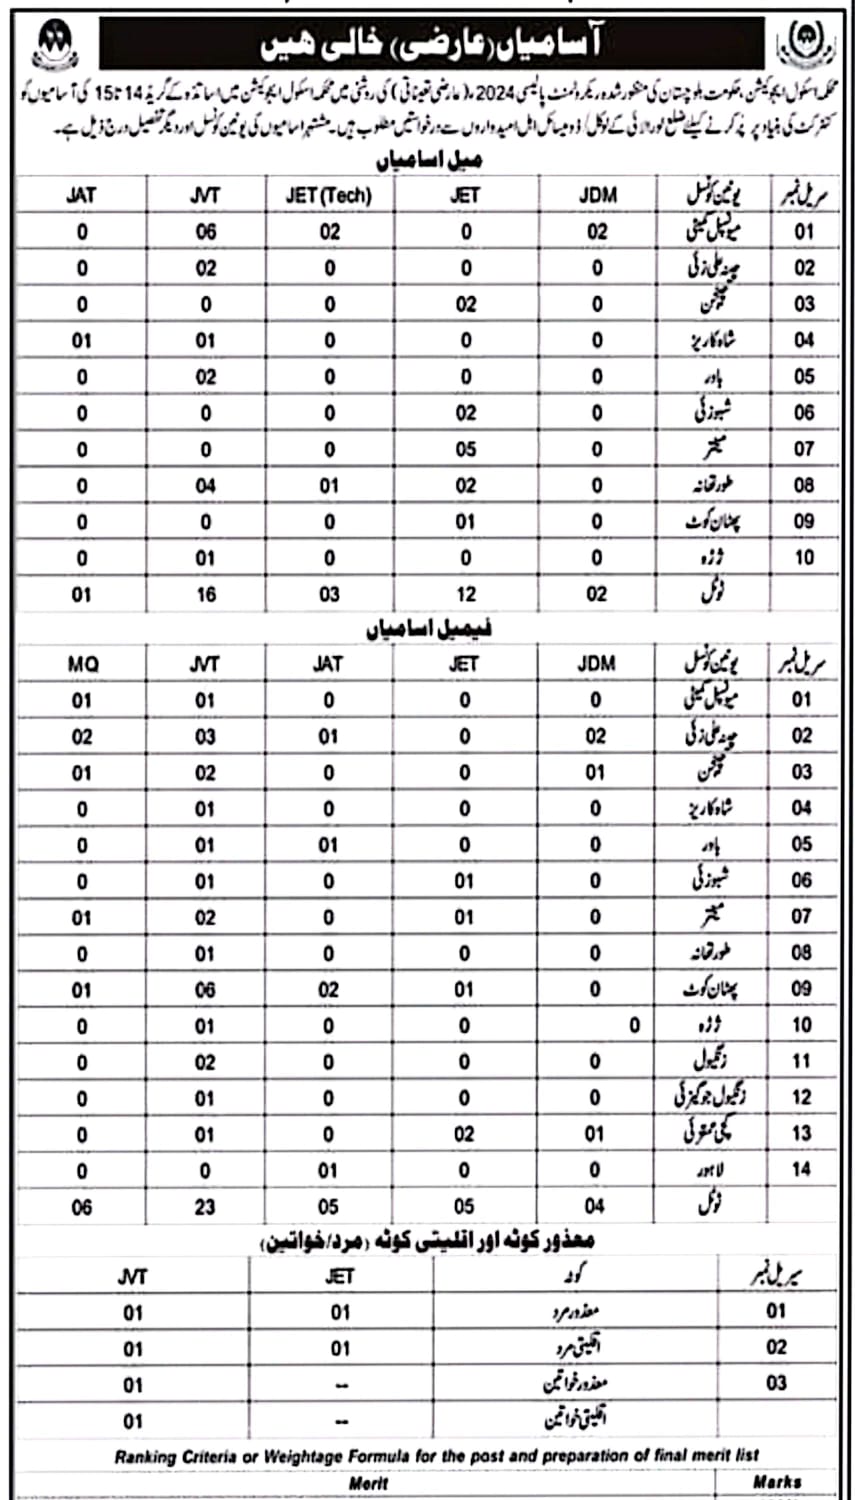 آسامیاں (عارضی) خالی ھیں
محکمہ اسکول ایجوکیشن، حکومت بلوچستان کی منظور شدہ ریکروٹمنٹ پالیسی 2024، (عارضی تعیناتی) کی روشنی میں محکمہ اسکول ایجوکیشن میں اساتذہ کے گریڈ 14 تا 15 کی آسامیوں کو
کنٹرکٹ کی بنیاد پر پُر کرنے کیلئے ضلع لورالائی کے لوکل / ڈومیسائل اہل امیدواروں سے درخواستیں مطلوب ہیں۔ مشتہر اسامیوں کی یونین کونسل اور دیگر تفصیل درج ذیل ہے۔
میل اسامیاں
سریل نمبر یونین کونسل JDM JET JET (Tech) JVT JAT
01 میونسپل کمیٹی 02 0 02 06 0
02 چینہ علی زئی 0 0 0 02 0
03 0 02 0 0 0
04 شاہ کاریز 0 0 0 01 01
05 پاور 0 0 0 02 0
06 شبوزئی 0 02 0 0 0
07 میختر 0 05 0 0 0
08 طور تھانہ 0 02 01 04 0
09 پٹھان کوٹ 0 01 0 0 0
10 ژڑہ 0 0 0 01 0
ٹوٹل 02 12 03 16 01
فیمیل اسامیاں
سریل نمبر یونین کونسل JDM JET JAT JVT MQ
01 میونسپل کمیٹی 0 0 0 01 01
02 چینہ علی زئی 02 0 01 03 02
03 01 0 0 02 01
04 شاہ کاریز 0 0 0 01 0
05 پاور 0 0 01 01 0
06 شبوزئی 0 01 0 01 0
07 میختر 0 01 0 02 01
08 طور تھانہ 0 0 0 01 0
09 پٹھان کوٹ 0 01 02 06 01
10 ژڑہ 0 0 0 01 0
11 زنگیول 0 0 0 02 0
12 زنگیول جوگیزئی 0 0 0 01 0
13 01 02 0 01 0
14 لاہور 0 0 01 0 0
ٹوٹل 04 05 05 23 06
معذور کوٹہ اور اقلیتی کوٹہ (مرد/خواتین)
سیریل نمبر کوٹہ JET JVT
01 معذور مرد 01 01
02 اقلیتی مرد 01 01
03 معذور خواتین -- 01
اقلیتی خواتین -- 01
Ranking Criteria or Weightage Formula for the post and preparation of final merit list
Merit Marks